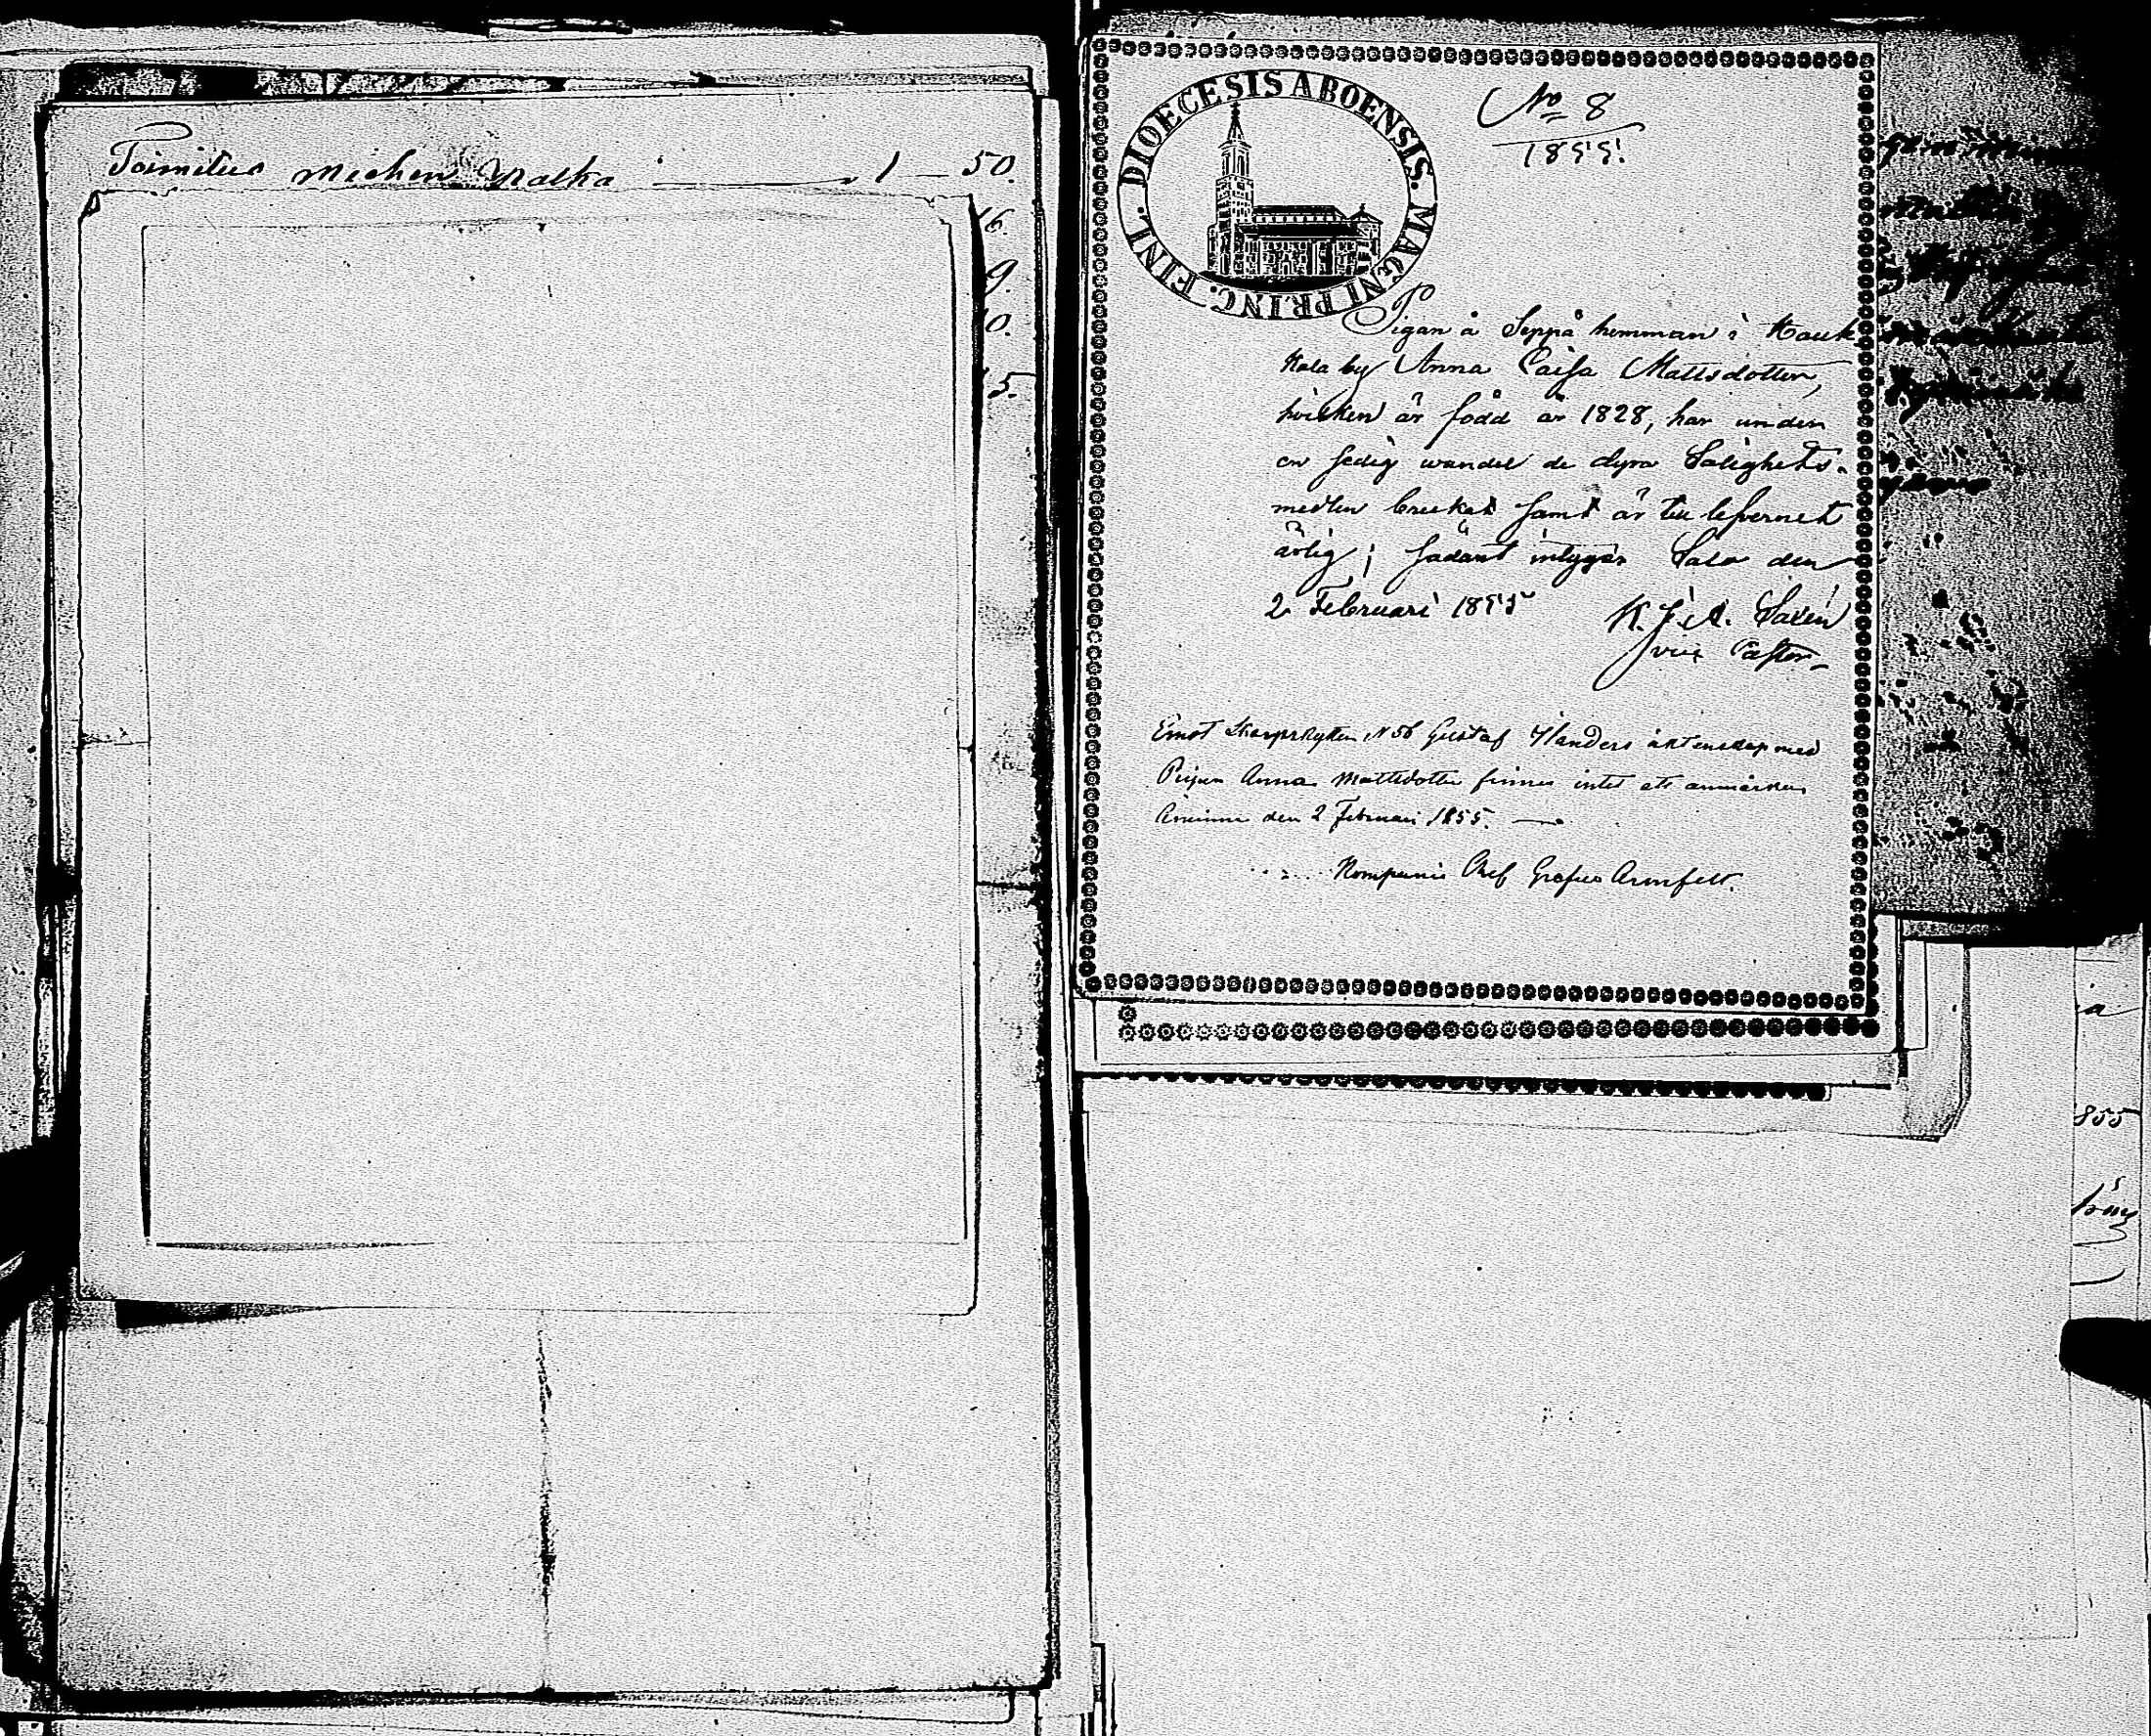 Toimitus miehen Matka 1 — 50.
16.
9.
10.
15.
DIOECESIS ABOENSIS. MAGNI PRINC. FINL.
No 8
1855.
Pigan å Seppä hemman i Kauk
kola by Anna Caisa Mattsdotter,
hvilken är född år 1828, har under
en sedig wandel de dyra Salighets-
medlen brukat samt är till lefvernet
ärlig; sådant intygar Salo den
2 Februari 1855 K. J. A. Salén
vice Pastor.
Emot Skarpskytten N 56 Gustaf Flanders äktenskap med
Pigan Anna Mattsdotter finnes intet att anmärka
Åminne den 2 Februari 1855.
Kompanie Chef Grefve Armfelt.
a
855